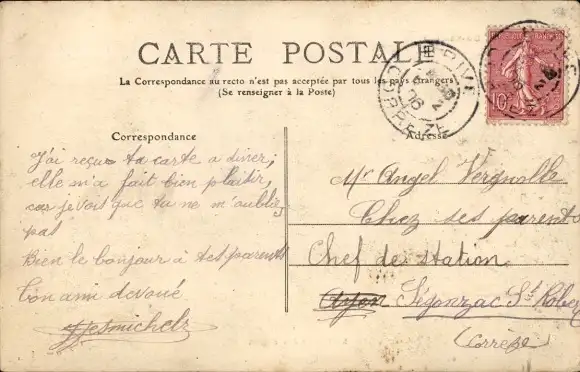 CARTE POSTALE
La Correspondance au recto n'est pas acceptée par tous les pays étrangers
(Se renseigner à la Poste)
Correspondance
Adresse
J'ai reçu ta carte a diner,
elle m'a fait bien plaisir,
car je vois que tu ne m'oublie
pas
Bien le bonjour à tes parents
Ton ami devoué
Desmichels
Mr Angel Vergnolle
Chez ses parents
Chef de station
Ayen Segonzac St Robert
(Corrèze)
BRIVE
CORREZE
10c